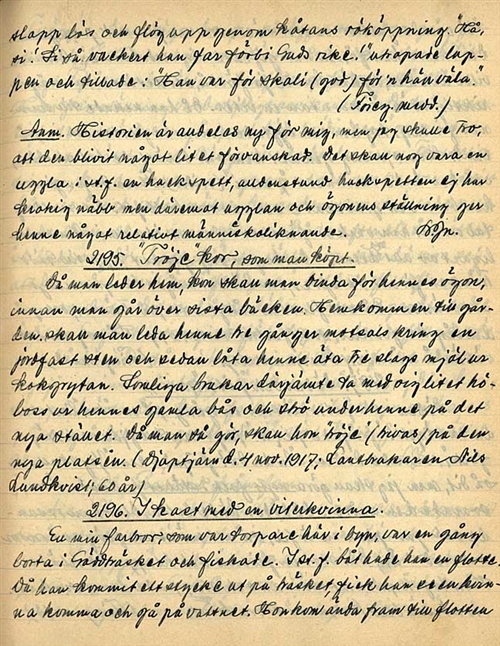 slapp lös och flög upp genom kåtans rököppning. "Hå,
si! Si så vackert han far förbi Guds rike!" utropade lap-
pen och tillade: "Han var för skali (god) för 'n hän väla."
(Föreg. medd.)
Anm. Historien är andel as ny för mig, men jag skulle tro,
att den blivit något litet förvanskad. Det skall nog vara en
uggla i st. f. en hackspett, audenstund hackspetten ej har
krokig näbb men däremot ugglan och ögonens ställning ger
henne något relativt människoliknande.
2195. "Tröje" kor, som man köpt.
Då man leder hem, kon skall man binda för hennes ögon,
innan man går över sista bäcken. Hemkommen till går-
den skall man leda henne tre gånger motsols kring en
jordfast sten och sedan låta henne äta tre slags mjöl ur
kokgrytan. Somliga brukar därjämte ta med sig litet hö-
boss ur hennes gamla bås och strö under henne på det
nya stället. Då man så gör, skall hon "tröje" (trivas) på den
nya platsen. (Djäptjärn d. 4 nov. 1917; Lantbrukaren Nils
Lundkvist; 60 år)
2196. I kast med en viterkvinna.
En min farbror, som var torpare här i byn, var en gång
borta i Gäddträsket och fiskade. I st. f. båt hade han en flotte.
Då han kommit ett stycke ut på träsket, fick han se en kvin-
na komma och gå på vattnet. Hon kom ända fram till flotten